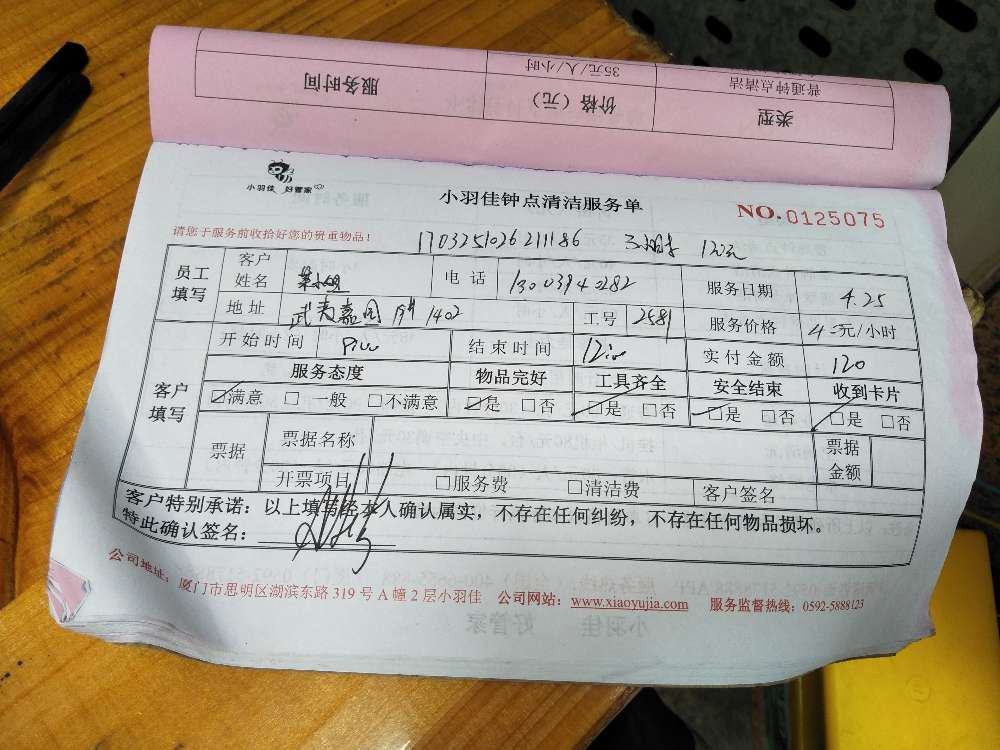 服务时间 价格（元） 类型
35元/人/小时 普通钟点清洁
小羽佳 好管家
小羽佳钟点清洁服务单 NO.0125075
请您于服务前收拾好您的贵重物品！
170325102621186
员工填写 客户姓名 电话 13003940282 服务日期 4.25
地址 武夷嘉园 1402 工号 2581 服务价格 元/小时
开始时间 结束时间 实付金额 120
客户填写 服务态度 物品完好 工具齐全 安全结束 收到卡片
☑满意 □一般 □不满意 ☑是 □否 ☑是 □否 ☑是 □否 ☑是 □否
票据 票据名称 票据金额
开票项目 □服务费 □清洁费 客户签名
客户特别承诺：以上填写经本人确认属实，不存在任何纠纷，不存在任何物品损坏。
特此确认签名：
公司地址：厦门市思明区湖滨东路319号A幢2层小羽佳 公司网站：www.xiaoyujia.com 服务监督热线：0592-5888123